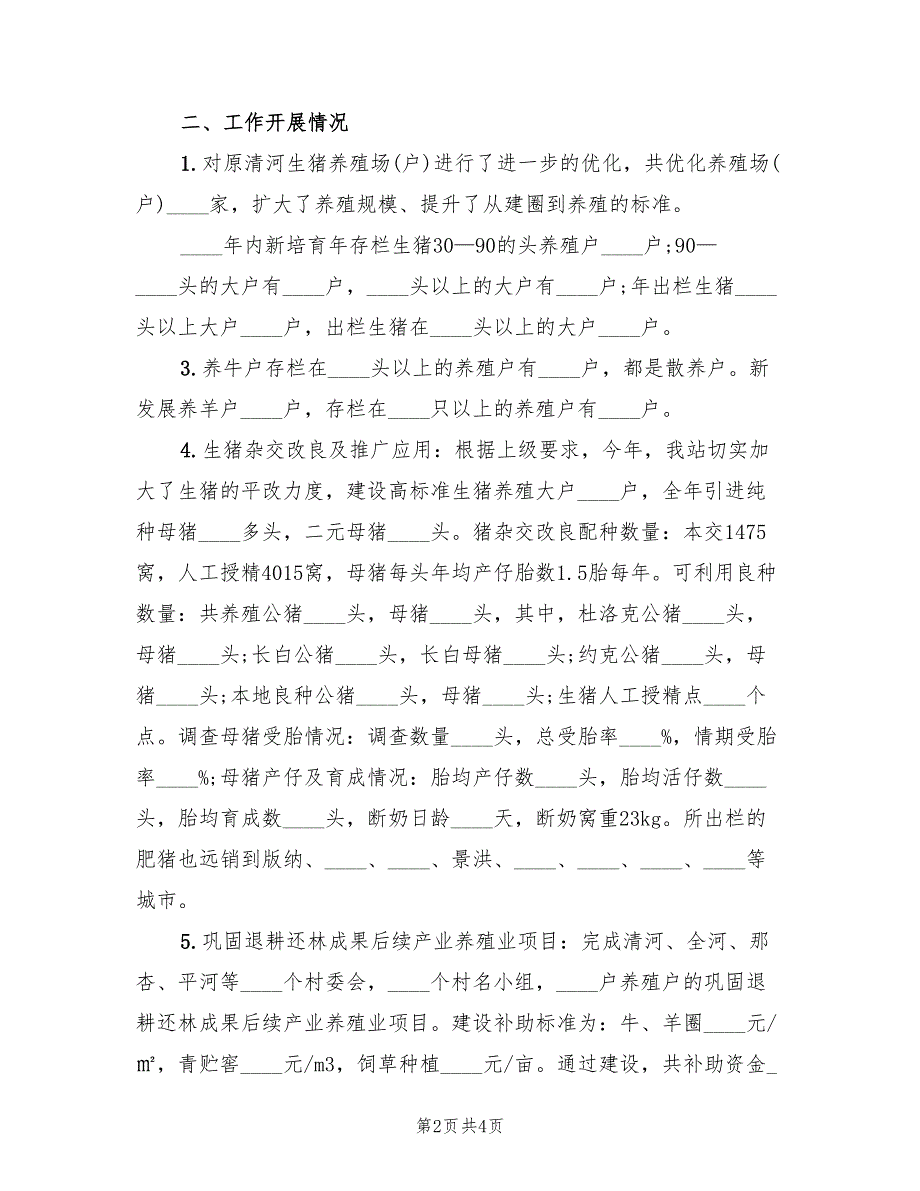 二、工作开展情况
1. 对原清河生猪养殖场(户)进行了进一步的优化，共优化养殖场(
户)____家，扩大了养殖规模、提升了从建圈到养殖的标准。
____年内新培育年存栏生猪30—90的头养殖户____户;90—
____头的大户有____户，____头以上的大户有____户;年出栏生猪____
头以上大户____户，出栏生猪在____头以上的大户____户。
3. 养牛户存栏在____头以上的养殖户有____户，都是散养户。新
发展养羊户____户，存栏在____只以上的养殖户有____户。
4. 生猪杂交改良及推广应用：根据上级要求，今年，我站切实加
大了生猪的平改力度，建设高标准生猪养殖大户____户，全年引进纯
种母猪____多头，二元母猪____头。猪杂交改良配种数量：本交1475
窝，人工授精4015窝，母猪每头年均产仔胎数1.5胎每年。可利用良种
数量：共养殖公猪____头，母猪____头，其中，杜洛克公猪____头，
母猪____头;长白公猪____头，长白母猪____头;约克公猪____头，母
猪____头;本地良种公猪____头，母猪____头;生猪人工授精点____个
点。调查母猪受胎情况：调查数量____头，总受胎率____%，情期受胎
率____%;母猪产仔及育成情况：胎均产仔数____头，胎均活仔数____
头，胎均育成数____头，断奶日龄____天，断奶窝重23kg。所出栏的
肥猪也远销到版纳、____、____、景洪、____、____、____、____等
城市。
5. 巩固退耕还林成果后续产业养殖业项目：完成清河、全河、那
杏、平河等____个村委会，____个村名小组，____户养殖户的巩固退
耕还林成果后续产业养殖业项目。建设补助标准为：牛、羊圈____元/
㎡，青贮窖____元/m3，饲草种植____元/亩。通过建设，共补助资金_
第2页共4页